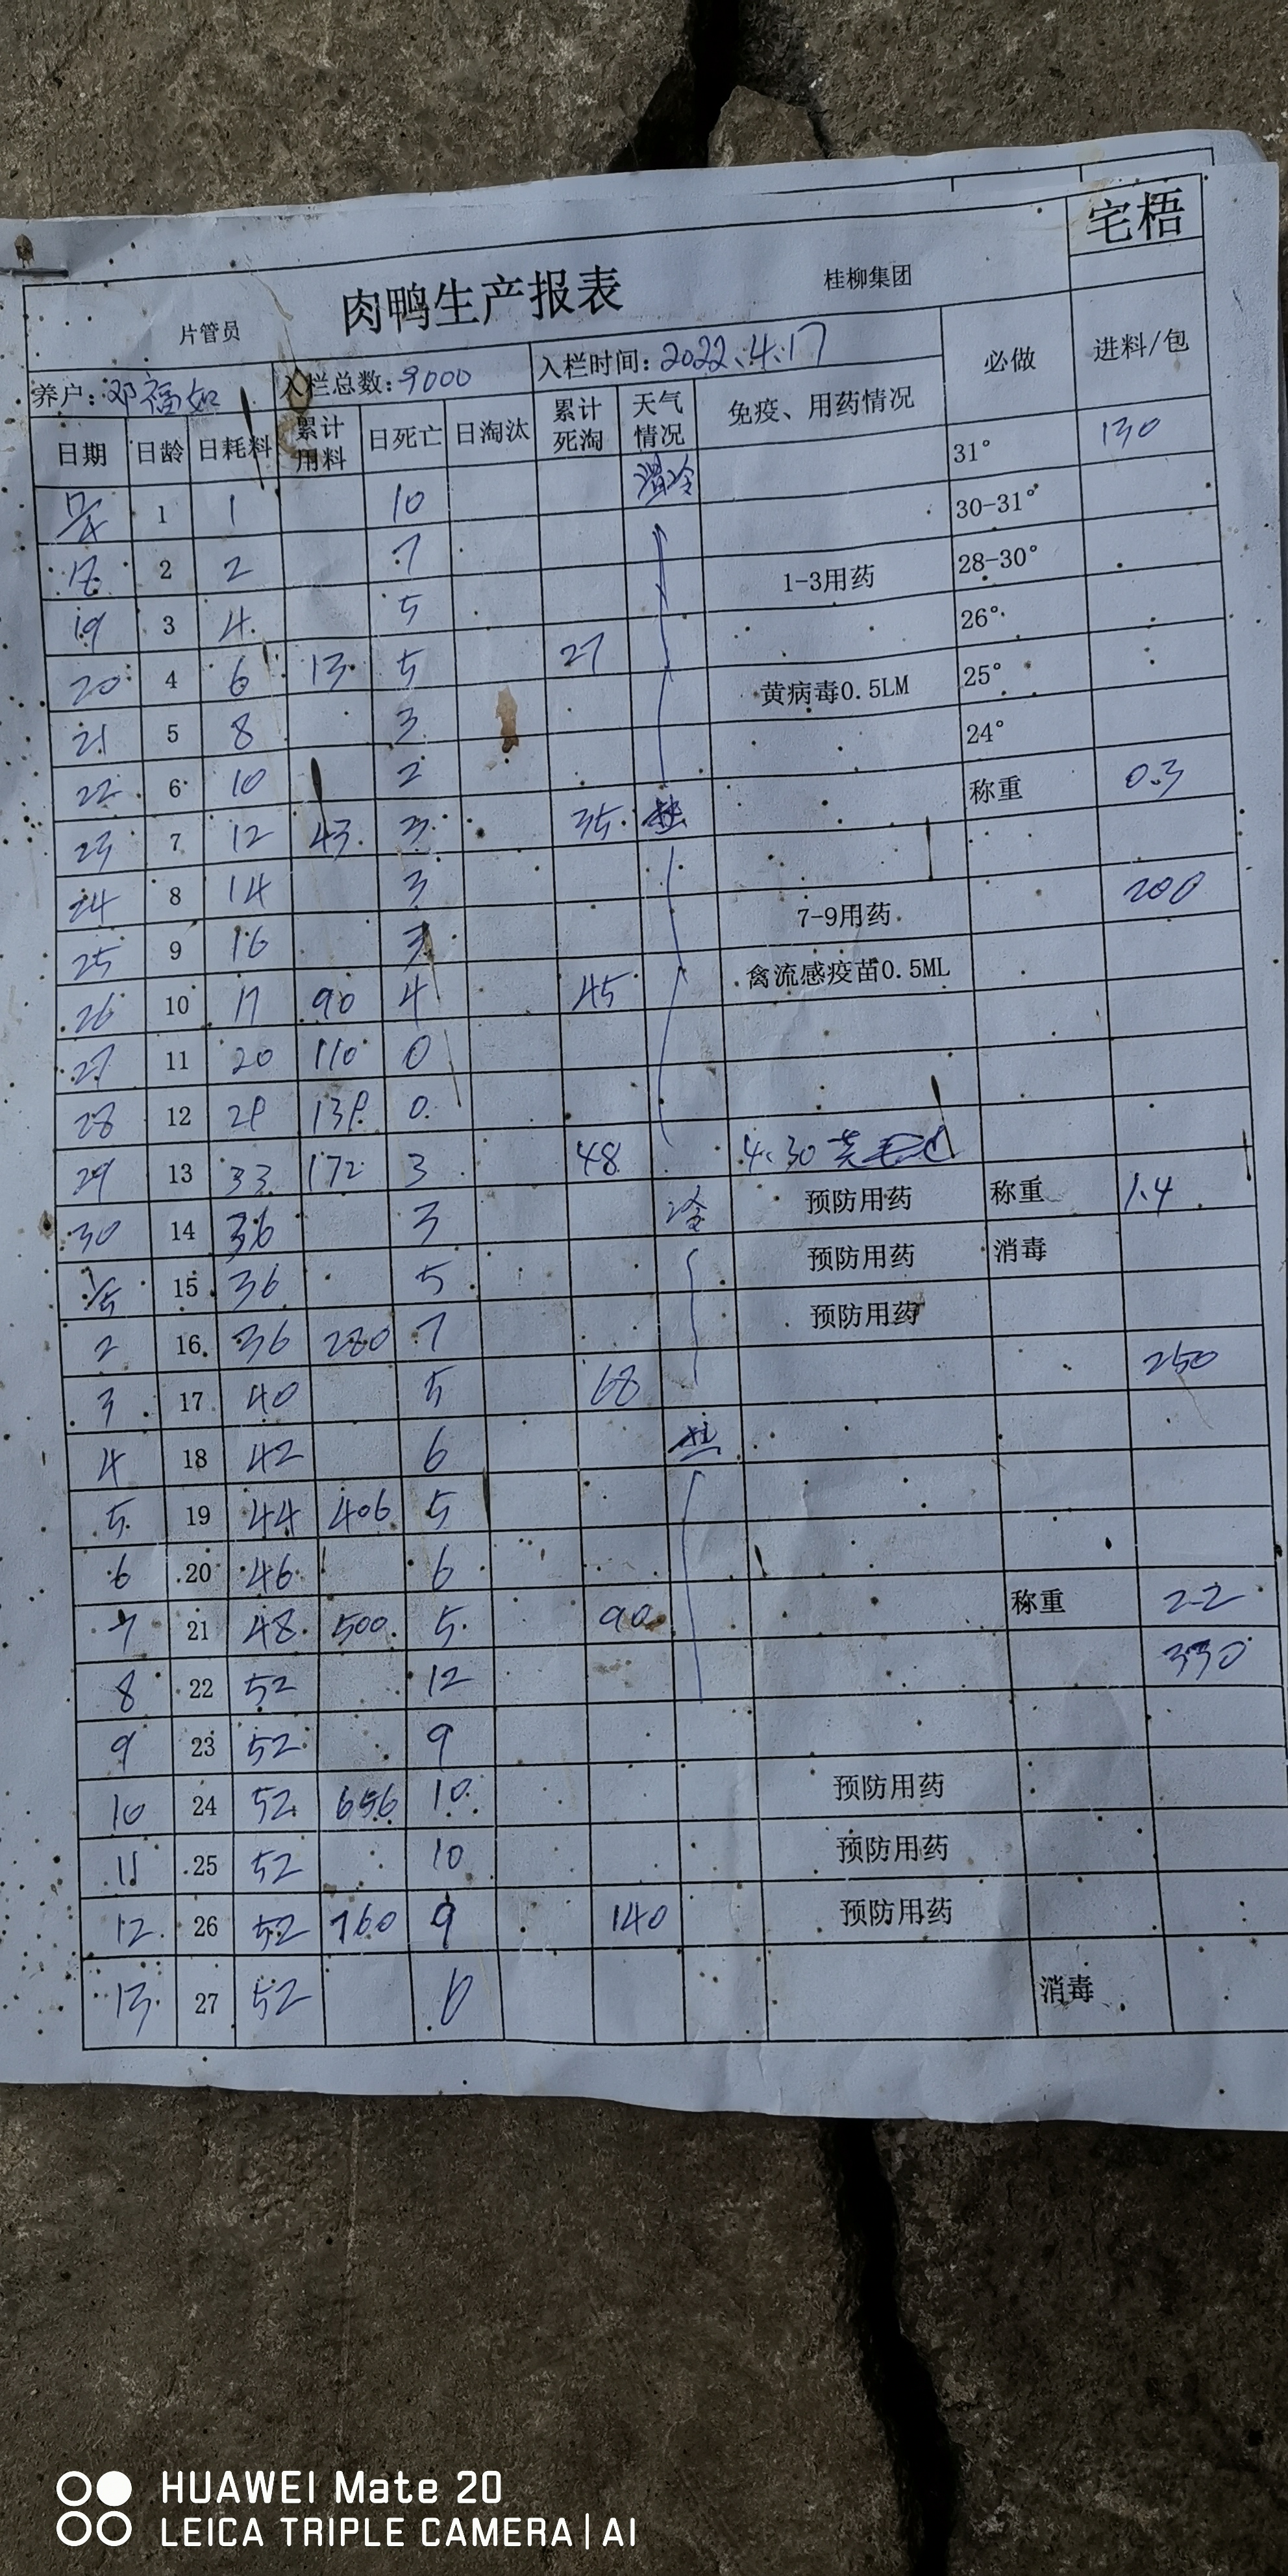 宅梧
肉鸭生产报表 桂柳集团
片管员
养户：邓福如 入栏总数：9000 入栏时间：2022.4.17 必做 进料/包
日期 日龄 日耗料 累计用料 日死亡 日淘汰 累计死淘 天气情况 免疫、用药情况
17/4 1 1 10 31° 130
18 2 2 7 30-31°
19 3 4 5 1-3用药 28-30°
20 4 6 13 5 27 26°
21 5 8 3 黄病毒0.5LM 25°
22 6 10 2 24°
23 7 12 43 3 35 称重 0.3
24 8 14 3
25 9 16 3 7-9用药 200
26 10 17 90 4 45 禽流感疫苗0.5ML
27 11 20 110 0
28 12 29 139 0
29 13 33 172 3 48 4.30
30 14 36 3 冷 预防用药 称重 1.4
1/5 15 36 5 预防用药 消毒
2 16 36 280 7 预防用药
3 17 40 5 68 250
4 18 42 6
5 19 44 406 5
6 20 46 6
7 21 48 500 5 90 称重 2.2
8 22 52 12 330
9 23 52 9
10 24 52 656 10 预防用药
11 25 52 10 预防用药
12 26 52 760 9 140 预防用药
13 27 52 6 消毒
HUAWEI Mate 20
LEICA TRIPLE CAMERA | AI